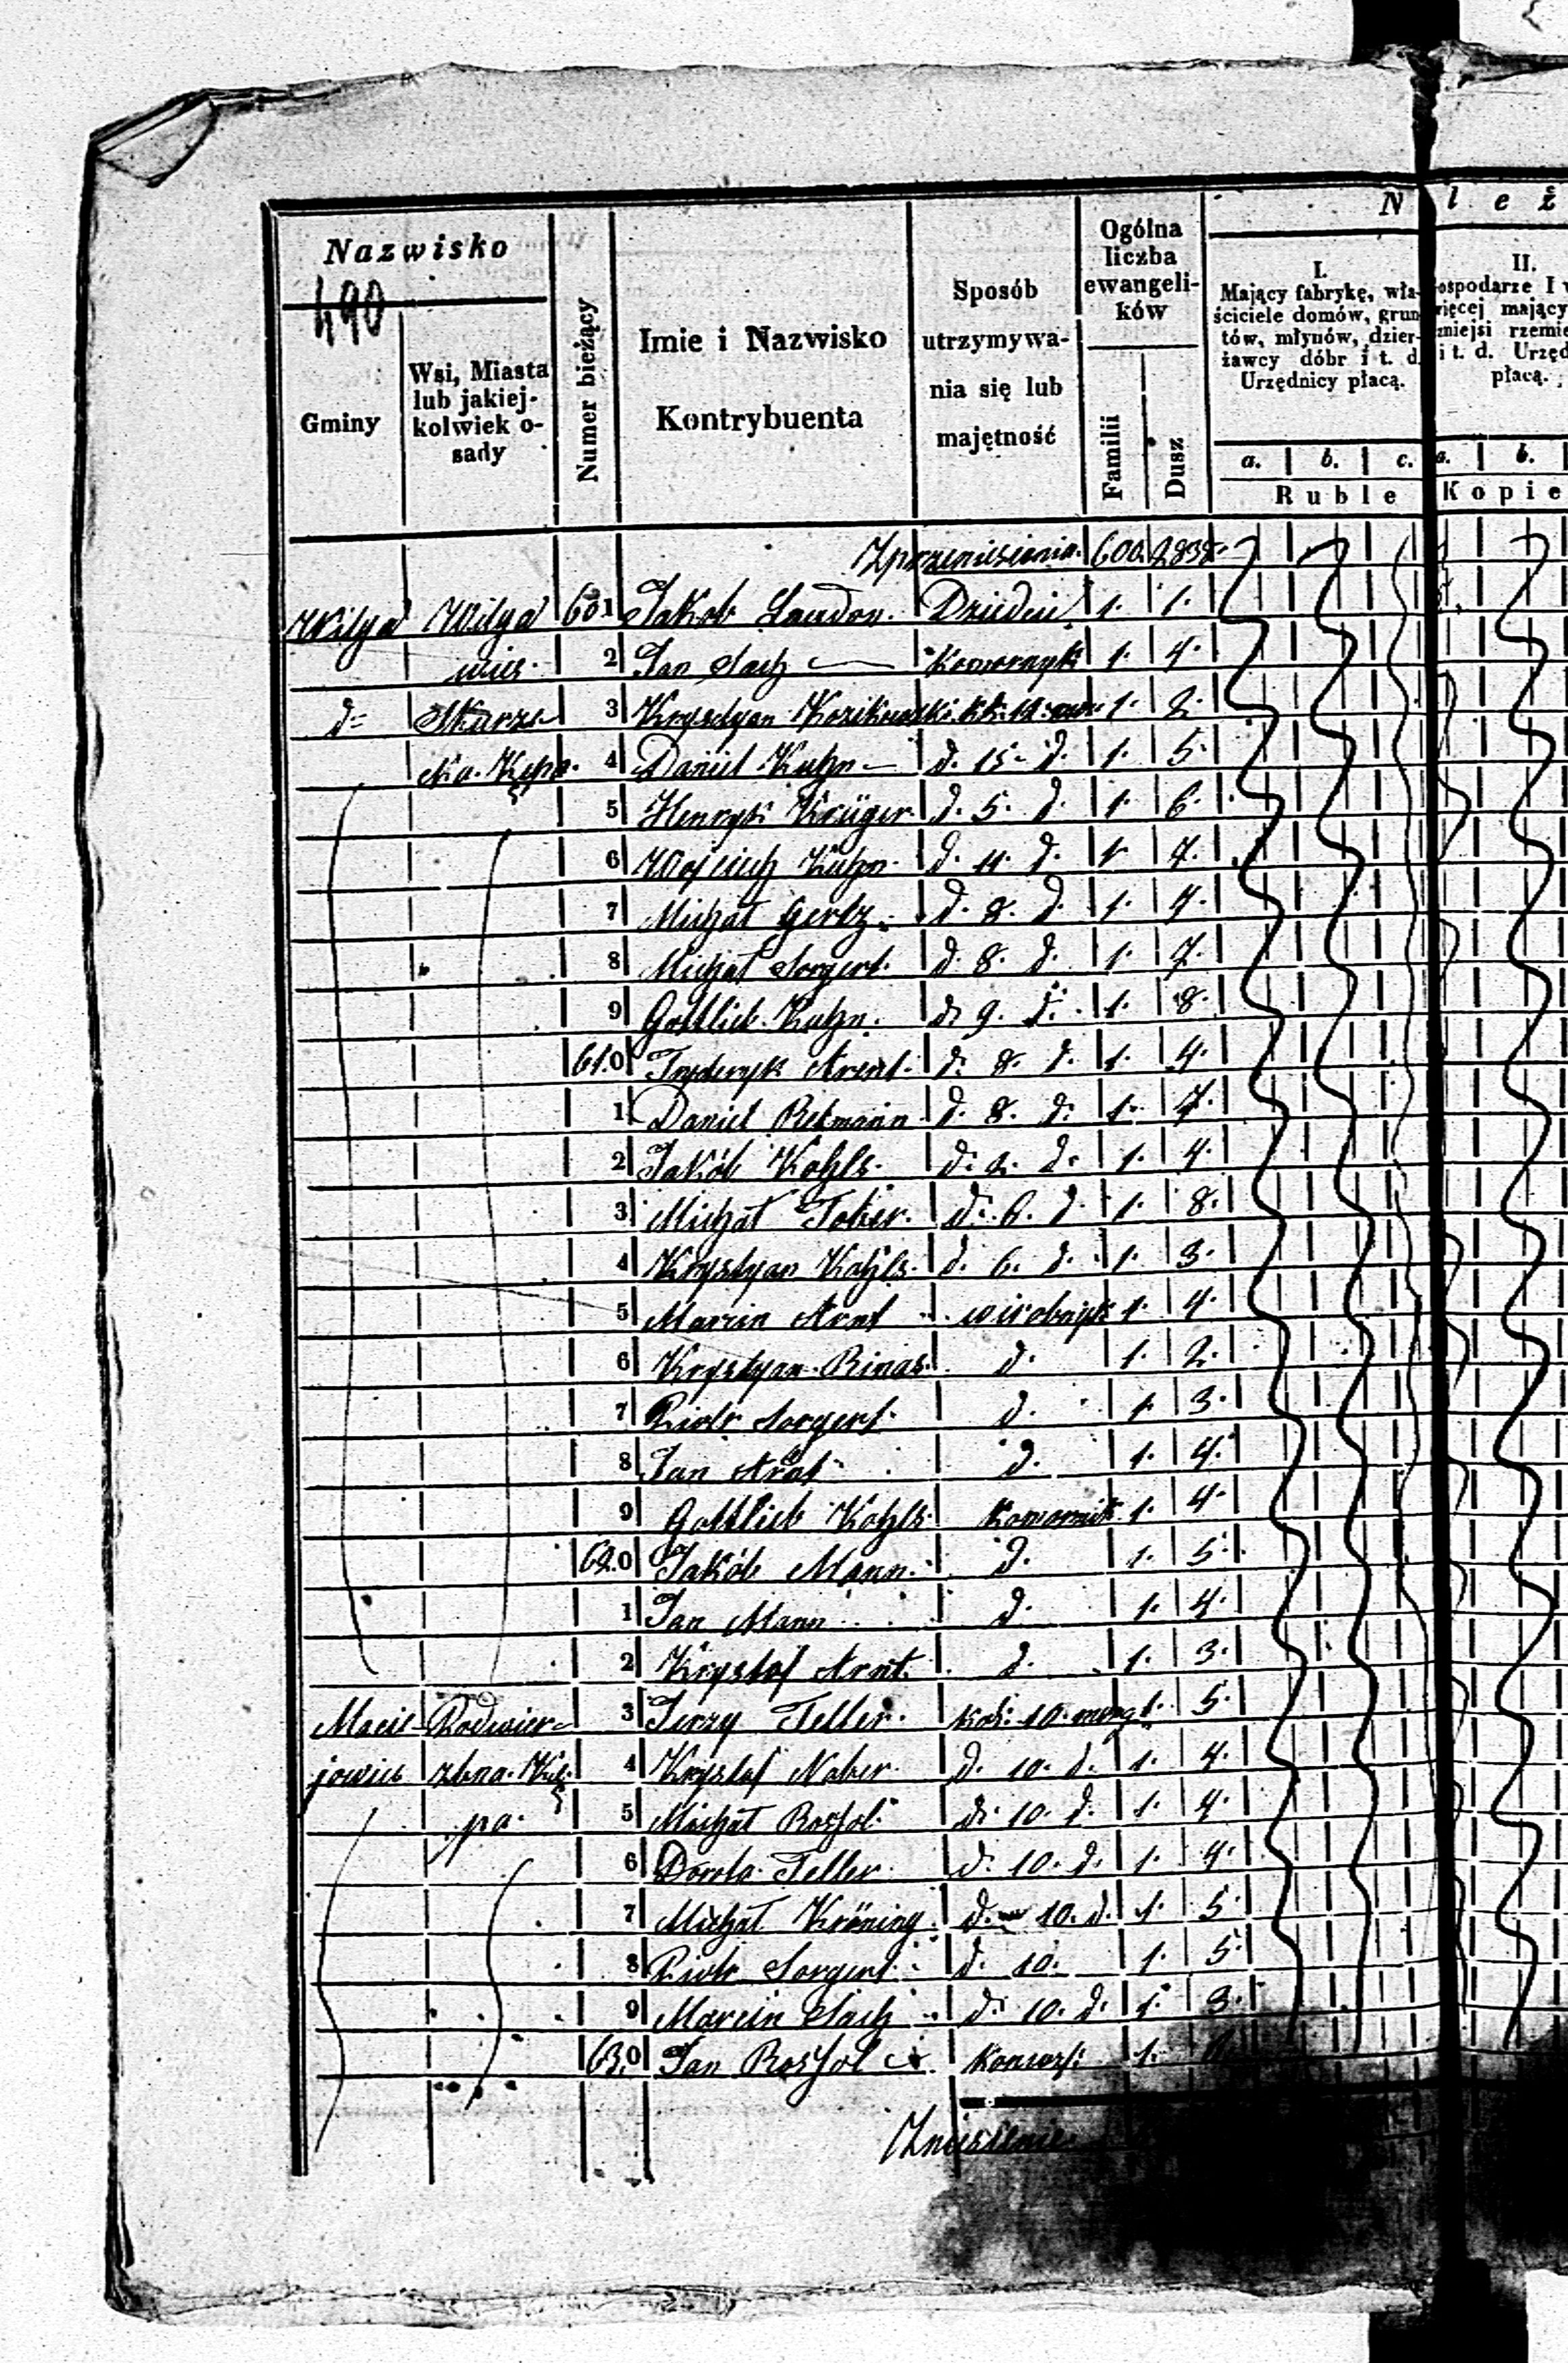 N l e ż
Nazwisko
490
Gminy
Wsi, Miasta lub jakiej- kolwiek o- sady
Numer bieżący
Imie i Nazwisko Kontrybuenta
Sposób utrzymywa- nia się lub majętność
Ogólna liczba ewangeli- ków
Familii
Dusz
I. Mający fabrykę, wła- ściciele domów, grun- tów, młynów, dzier- żawcy dóbr i t. d. Urzędnicy płacą.
II. ospodarze I w ięcej mający mniejsi rzemie i t. d. Urzęd płacą.
a. b. c. a. b.
Ruble Kopie
Z przeniesienia 600. 2838.
Wilga Wilga 601 Jakob Laudon. 1. 1.
wieś 2 Jan Sach Komornyk 1. 4.
d= Skurze 3 Krystyan Kozikowski 1. 2.
cka. Kępa. 4 Daniel Kuhn d. 15. d. 1. 5.
5 Henryk Krüger. d. 5. d. 1. 6.
6 Wojciech Kuhn. d. 4. d. 1. 7.
7 Michał Gertz. d. 8. d. 1. 4.
8 Michał Sorgert. d. 8. d. 1. 7.
9 Gottlieb Kuhn. d. 9. d. 1. 8.
610 Fryderyk Arent. d. 8. d. 1. 4.
1 Daniel Rekmann d. 8. d. 1. 7.
2 Jakób Kohls. d. 2. d. 1. 4.
3 Michał Tober. d. 6. d. 1. 8.
4 Krystyan Kohls. d. 6. d. 1. 3.
5 Marcin Arnt wirobnyk 1. 4.
6 Krystyan Rinas. d. 1. 2.
7 Piotr Sorgert. d. 1. 3.
8 Jan Arnt d. 1. 4.
9 Gottlieb Kohls Komornik 1. 4.
620 Jakób Mann. d. 1. 5.
1 Jan Mann d. 1. 4.
2 Krystof Arnt. d. 1. 3.
Macie- Podwier- 3 Jerzy Teller. kol. 10. morg 1. 5.
jowice zbna. Kę- 4 Krystof Naber. d. 10. d. 1. 4.
pa. 5 Michał Rosfol. d. 10. d. 1. 4.
6 Dorota Teller. d. 10. d. 1. 4.
7 Michał Kröning. d. 10. d. 1. 5.
8 Piotr Sorgert. d. 10. 1. 5.
9 Marcin Sach d. 10. d. 1. 3.
630 Jan Rosfol 1.
Zniesienie